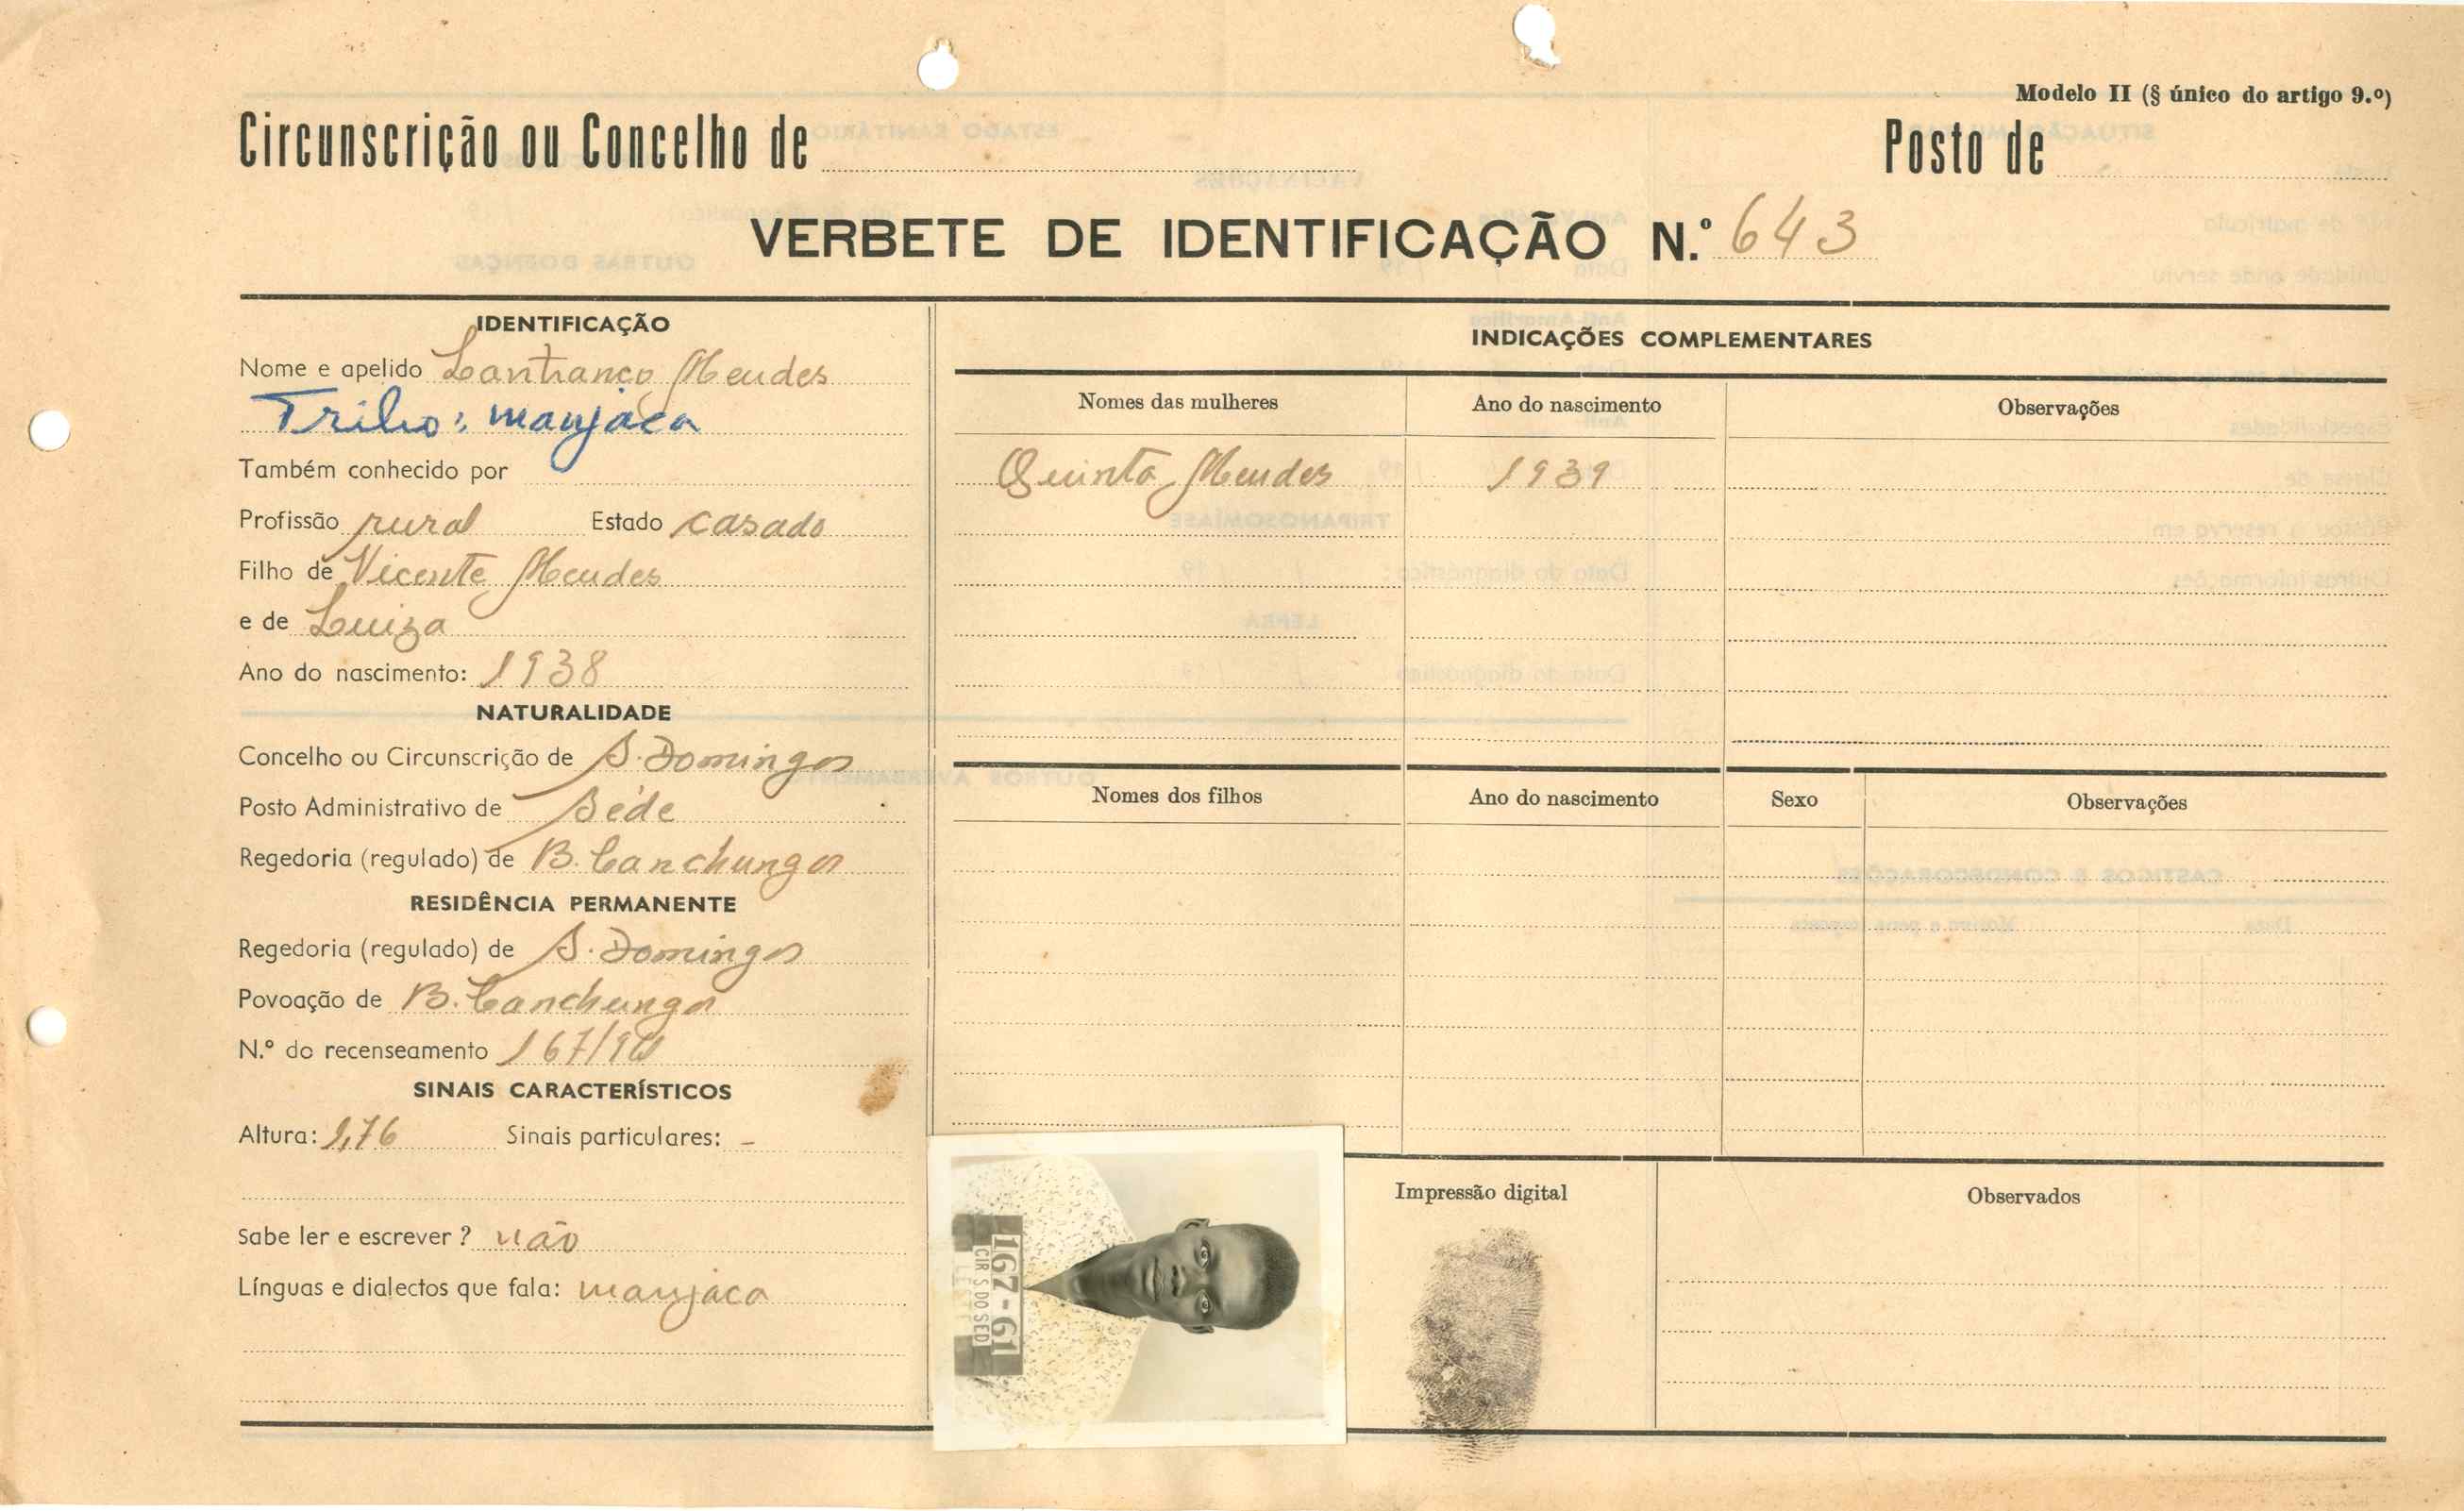 Modelo II (§ único do artigo 9.º)
Circunscrição ou Concelho de
Posto de
VERBETE DE IDENTIFICAÇÃO N.º 643
IDENTIFICAÇÃO
Nome e apelido Lanfranco Mendes
Tribo: manjaca
Também conhecido por
Profissão rural Estado casado
Filho de Vicente Mendes
e de Luiza
Ano do nascimento: 1938
NATURALIDADE
Concelho ou Circunscrição de S. Domingos
Posto Administrativo de Séde
Regedoria (regulado) de B. Canchungo
RESIDÊNCIA PERMANENTE
Regedoria (regulado) de S. Domingos
Povoação de B. Canchungo
N.º do recenseamento 167/
SINAIS CARACTERÍSTICOS
Altura: 1,76 Sinais particulares: -
Sabe ler e escrever? não
Línguas e dialectos que fala: manjaca
INDICAÇÕES COMPLEMENTARES
Nomes das mulheres Ano do nascimento Observações
Quinta Mendes 1939
Nomes dos filhos Ano do nascimento Sexo Observações
167-61
CIR S DO SED
Impressão digital
Observados